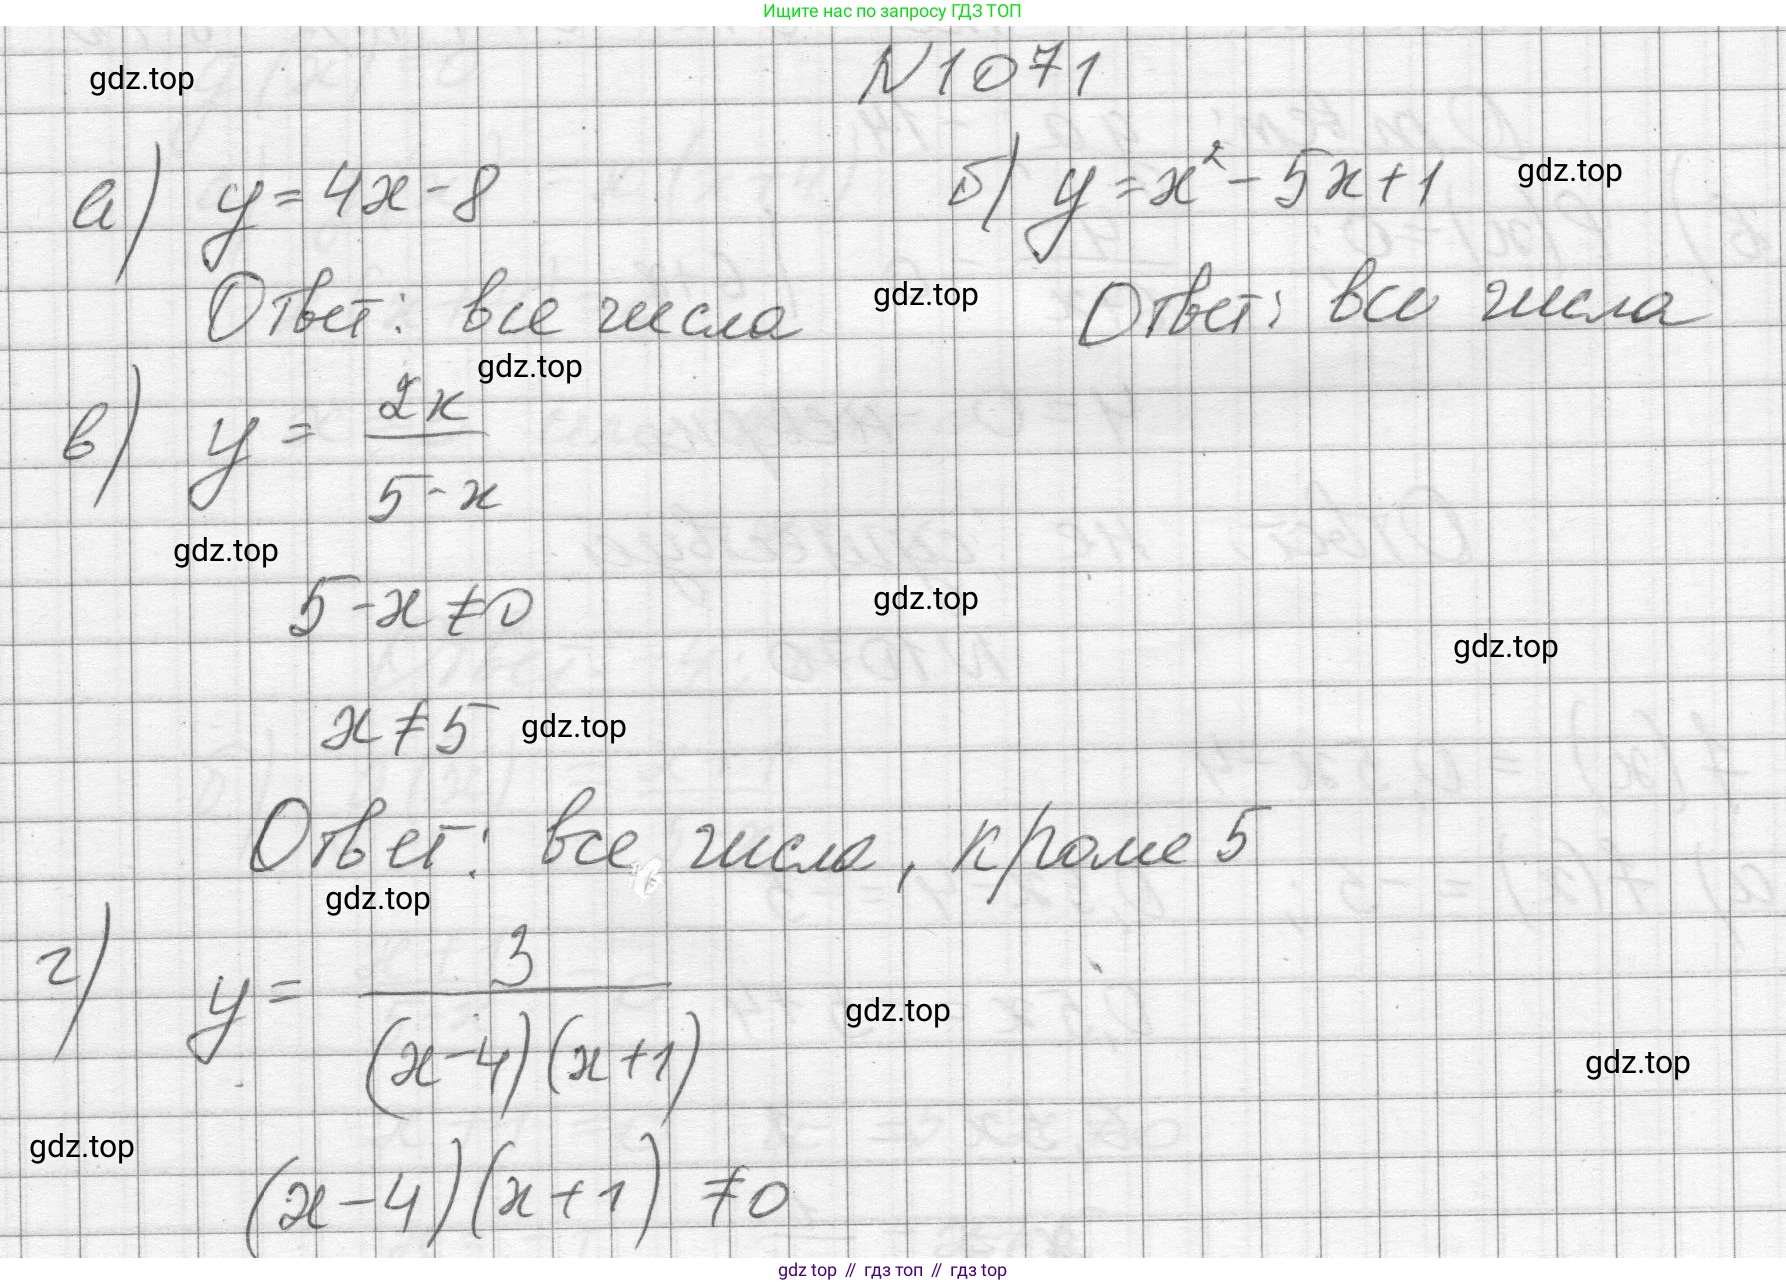 Ищите нас по запросу ГДЗ ТОП
N 1071
gdz.top
а) y = 4x - 8
б) y = x² - 5x + 1
gdz.top
Ответ: все числа
gdz.top
Ответ: все числа
gdz.top
в) y = 2x / (5 - x)
gdz.top
5 - x ≠ 0
gdz.top
gdz.top
x ≠ 5
gdz.top
Ответ: все числа, кроме 5
gdz.top
г) y = 3 / ((x - 4)(x + 1))
gdz.top
gdz.top
gdz.top
(x - 4)(x + 1) ≠ 0
gdz top // гдз топ // гдз top